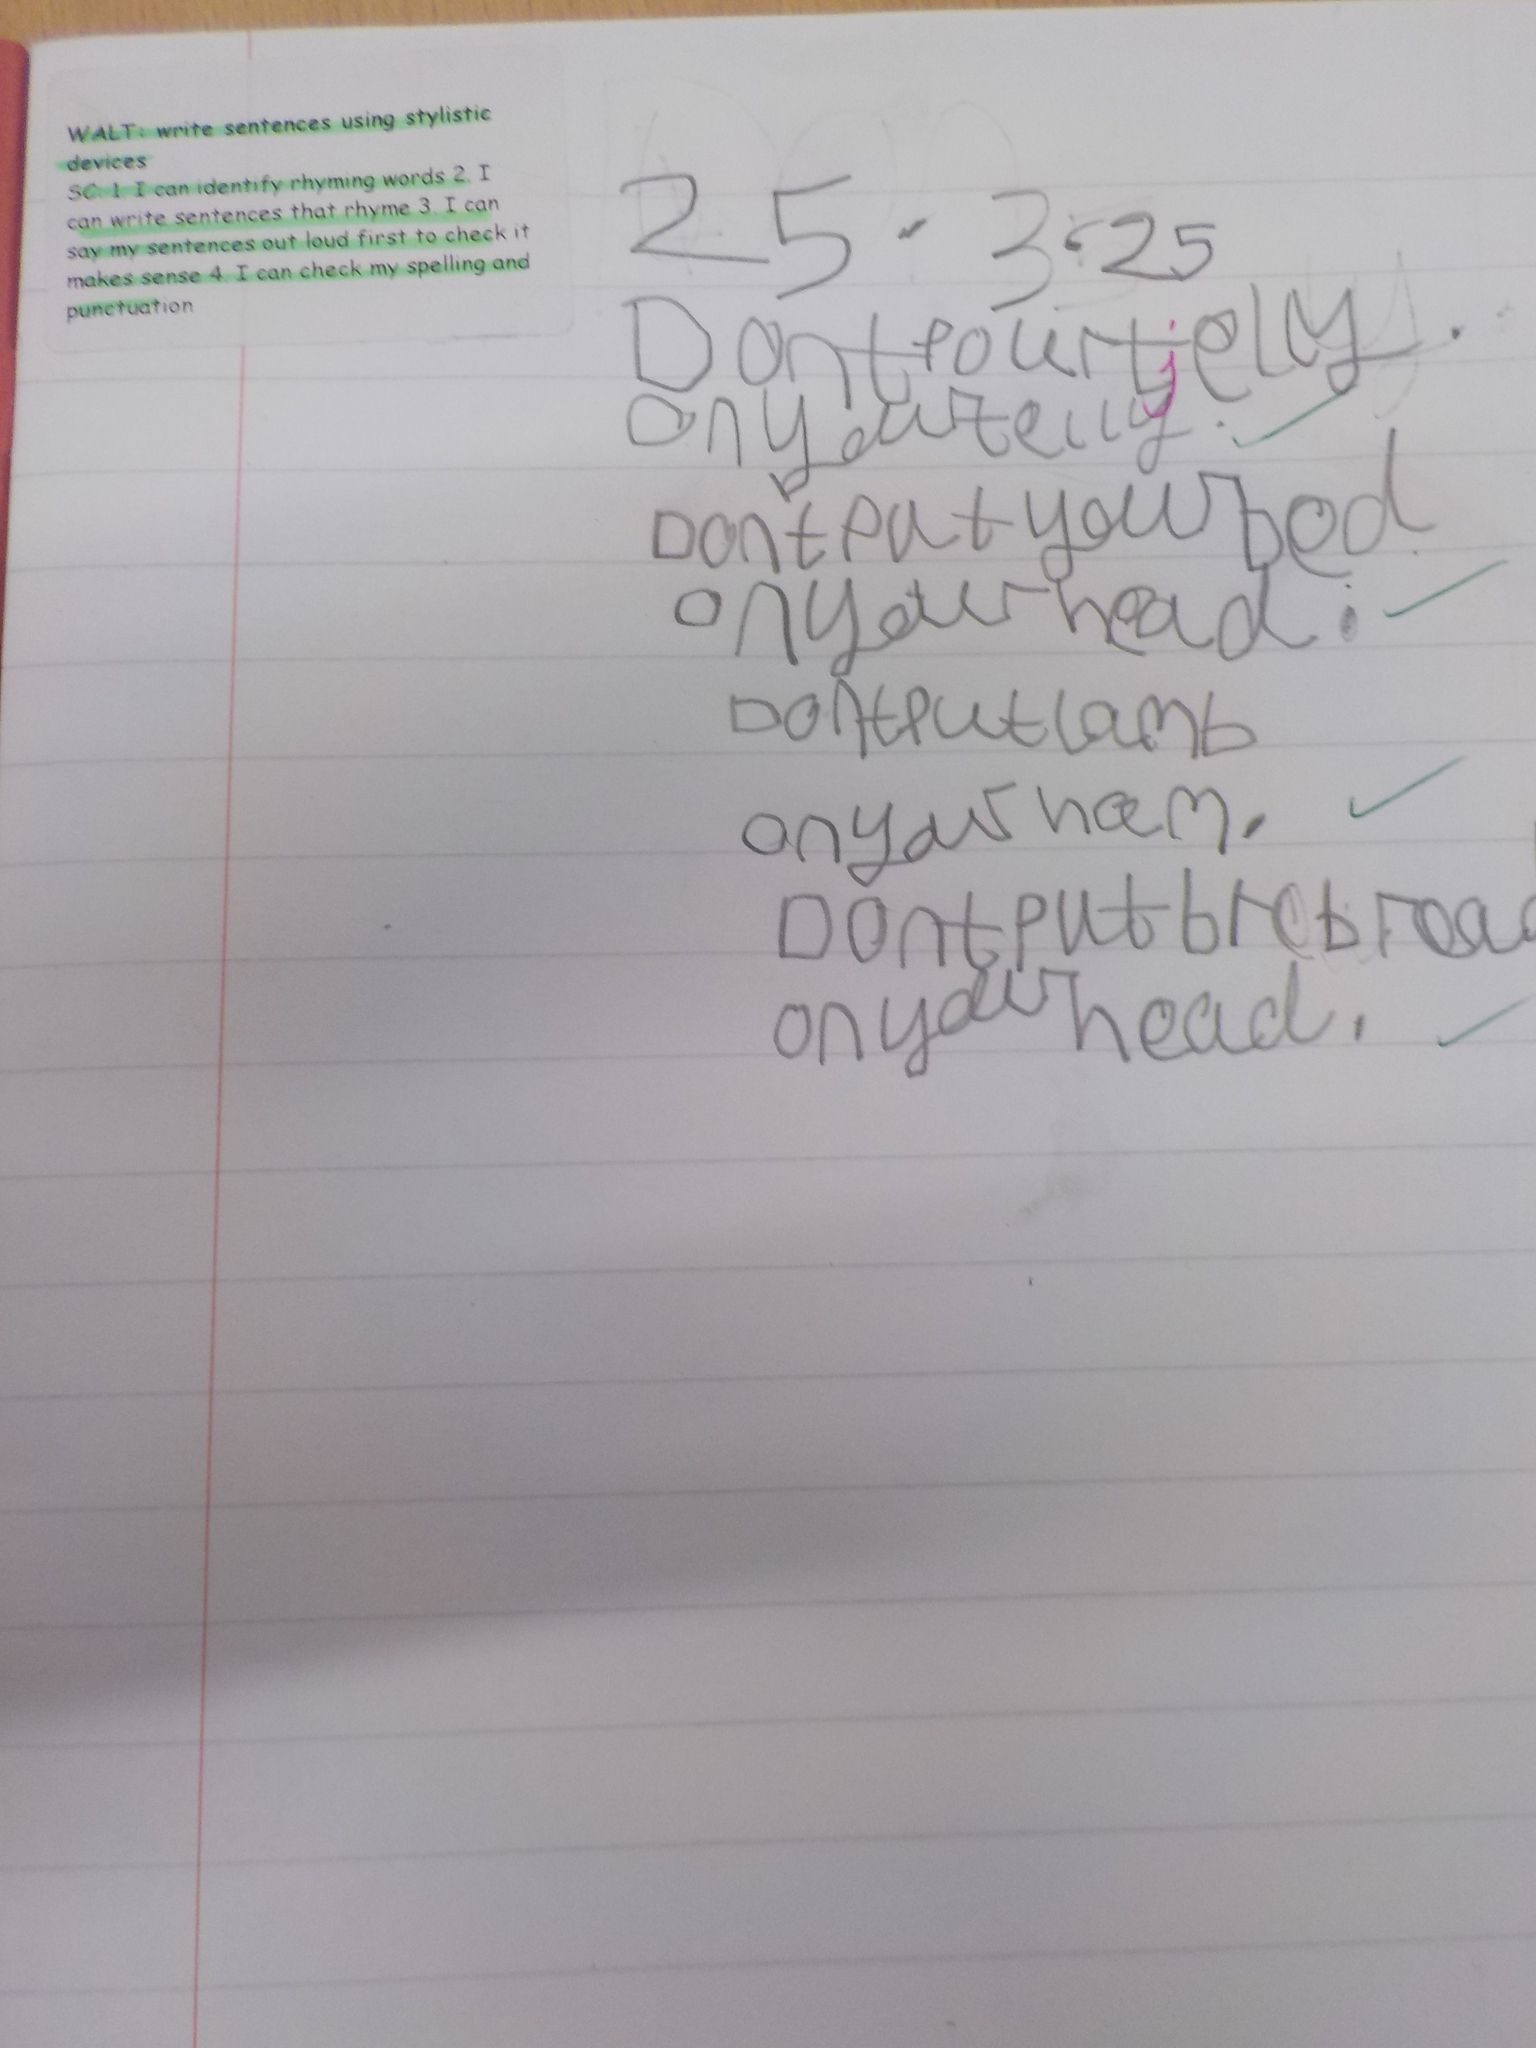 WALT: write sentences using stylistic
devices
SC: 1. I can identify rhyming words 2. I
can write sentences that rhyme 3. I can
say my sentences out loud first to check it
makes sense 4. I can check my spelling and
punctuation
25.3.25
Dont pour jelly.
on your telly.
Don't put your bed
on your head.
Dont put lamb
on your ham.
Dont put bre broad
on your head.